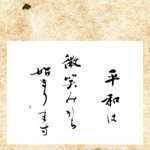 平和は
微笑みから
始まります